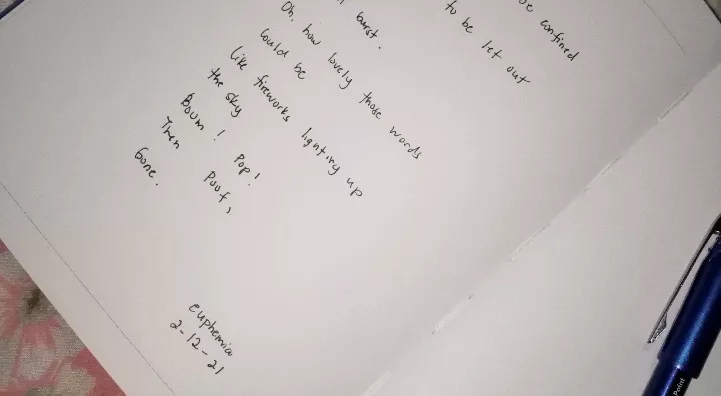 be confined
to be let out
burst.
Oh, how lovely those words
Could be
like fireworks lighting up
the sky
Boum! Pop!
Then Poof,
Gone.
euphemia
2-12-21
Point